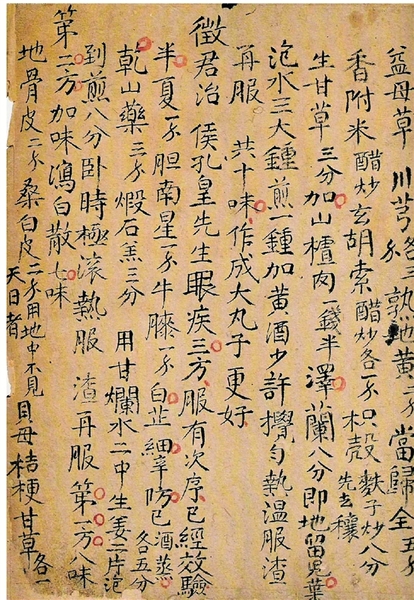 益母草 川芎各二 熟地黄一 當歸全五
香附米醋炒玄胡索醋炒各一 枳殼麩子炒八分先去穰
生甘草三分加山楂肉一錢半澤蘭八分即地留兒葉
泡水三大鍾煎一鍾加黄酒少許攪匀熱温服渣
再服 共十味作成大丸子更好
徵君治侯孔皇先生眼疾三方服有次序已經效驗
半夏一 胆南星一 牛膝一 白芷細辛防已酒蒸各五分
乾山藥三 煅石羔三分 用甘爛水二中生姜二片泡
到煎八分卧時極滚熱服渣再服第一方八味
第二方加味瀉白散七味
地骨皮二 桑白皮二 用地中不見天日者 貝母桔梗甘草各一